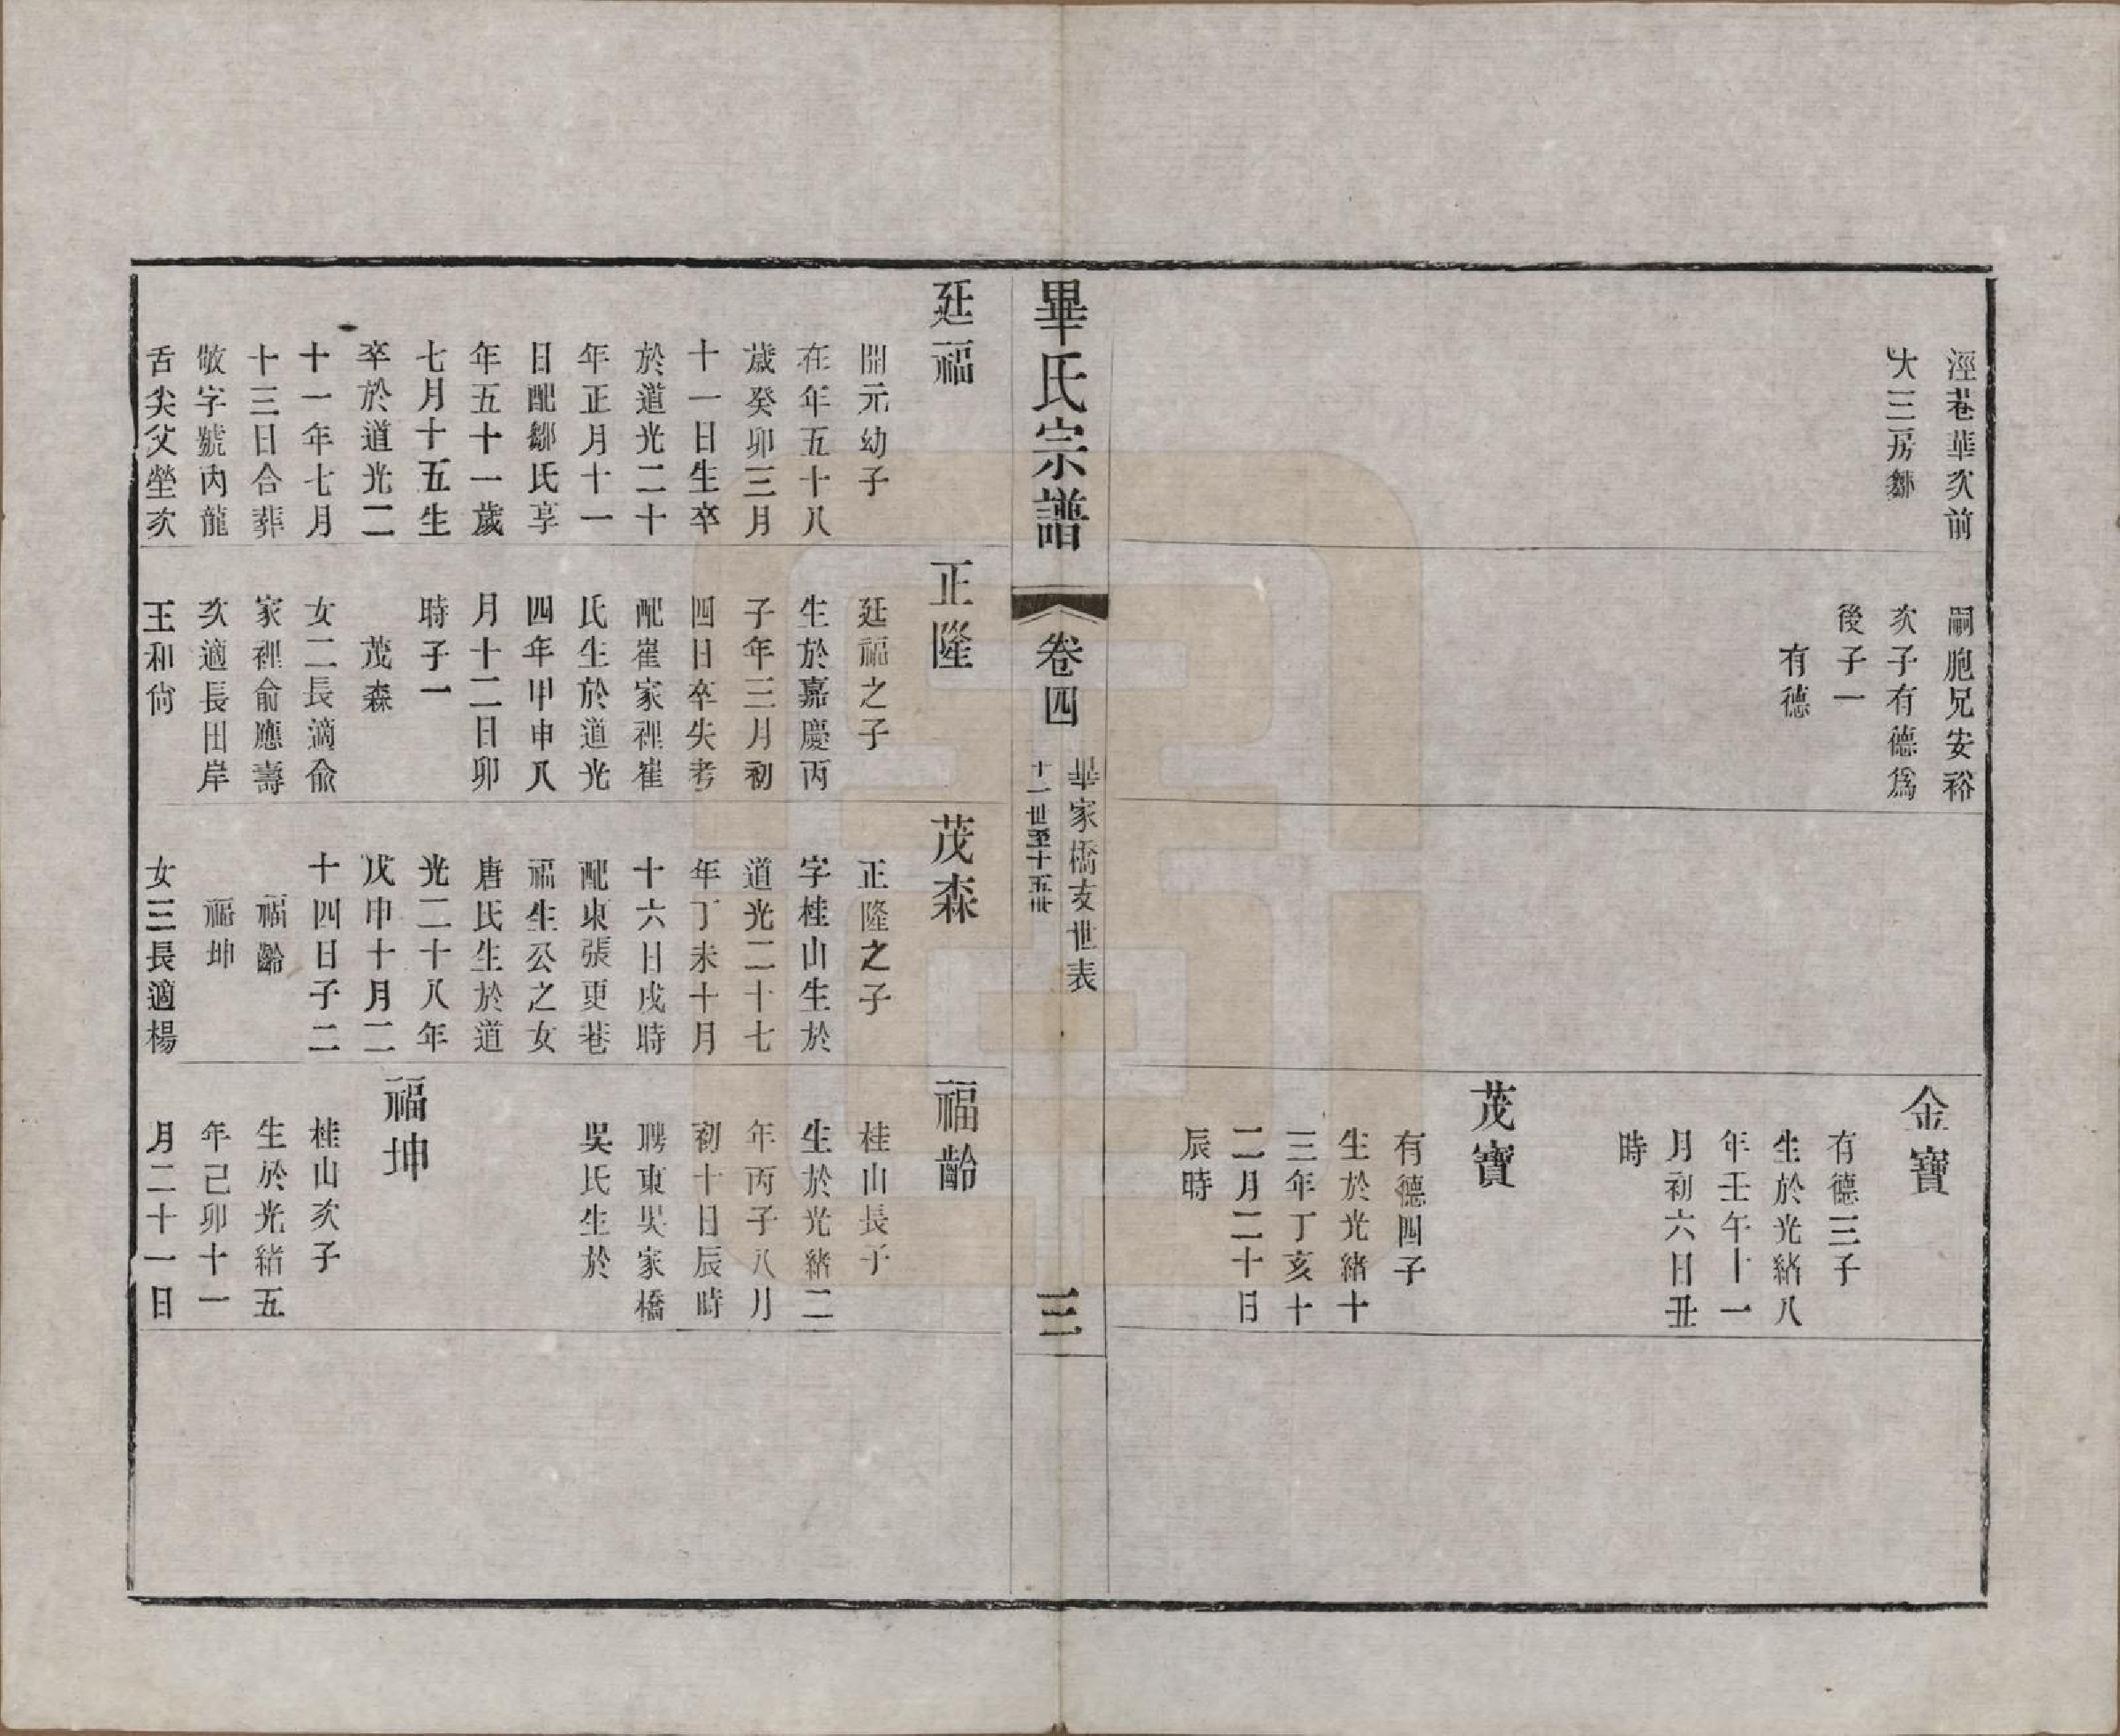 涇巷華次前
大三房鄒
嗣胞兄安裕
次子有德爲
後子一
有德
金寶
有德三子
生於光緒八
年壬午十一
月初六日丑
時
茂寶
有德四子
生於光緒十
三年丁亥十
二月二十日
辰時
畢氏宗譜
卷四
畢家橋支世表
十一世至十五世
三
延福
開元幼子
在年五十八
歲癸卯三月
十一日生卒
於道光二十
年正月十一
日配鄒氏享
年五十一歲
七月十五生
卒於道光二
十一年七月
十三日合葬
敬字號丙龍
舌尖父塋次
正隆
延福之子
生於嘉慶丙
子年三月初
四日卒失考
配崔家裡崔
氏生於道光
四年甲申八
月十二日卯
時子一
茂森
女二長適俞
家裡俞應壽
次適長田岸
王和尙
茂森
正隆之子
字桂山生於
道光二十七
年丁未十月
十六日戌時
配東張更巷
福生公之女
唐氏生於道
光二十八年
戊申十月二
十四日子二
福齡
福坤
女三長適楊
福齡
桂山長子
生於光緒二
年丙子八月
初十日辰時
聘東吳家橋
吳氏生於
福坤
桂山次子
生於光緒五
年己卯十一
月二十一日